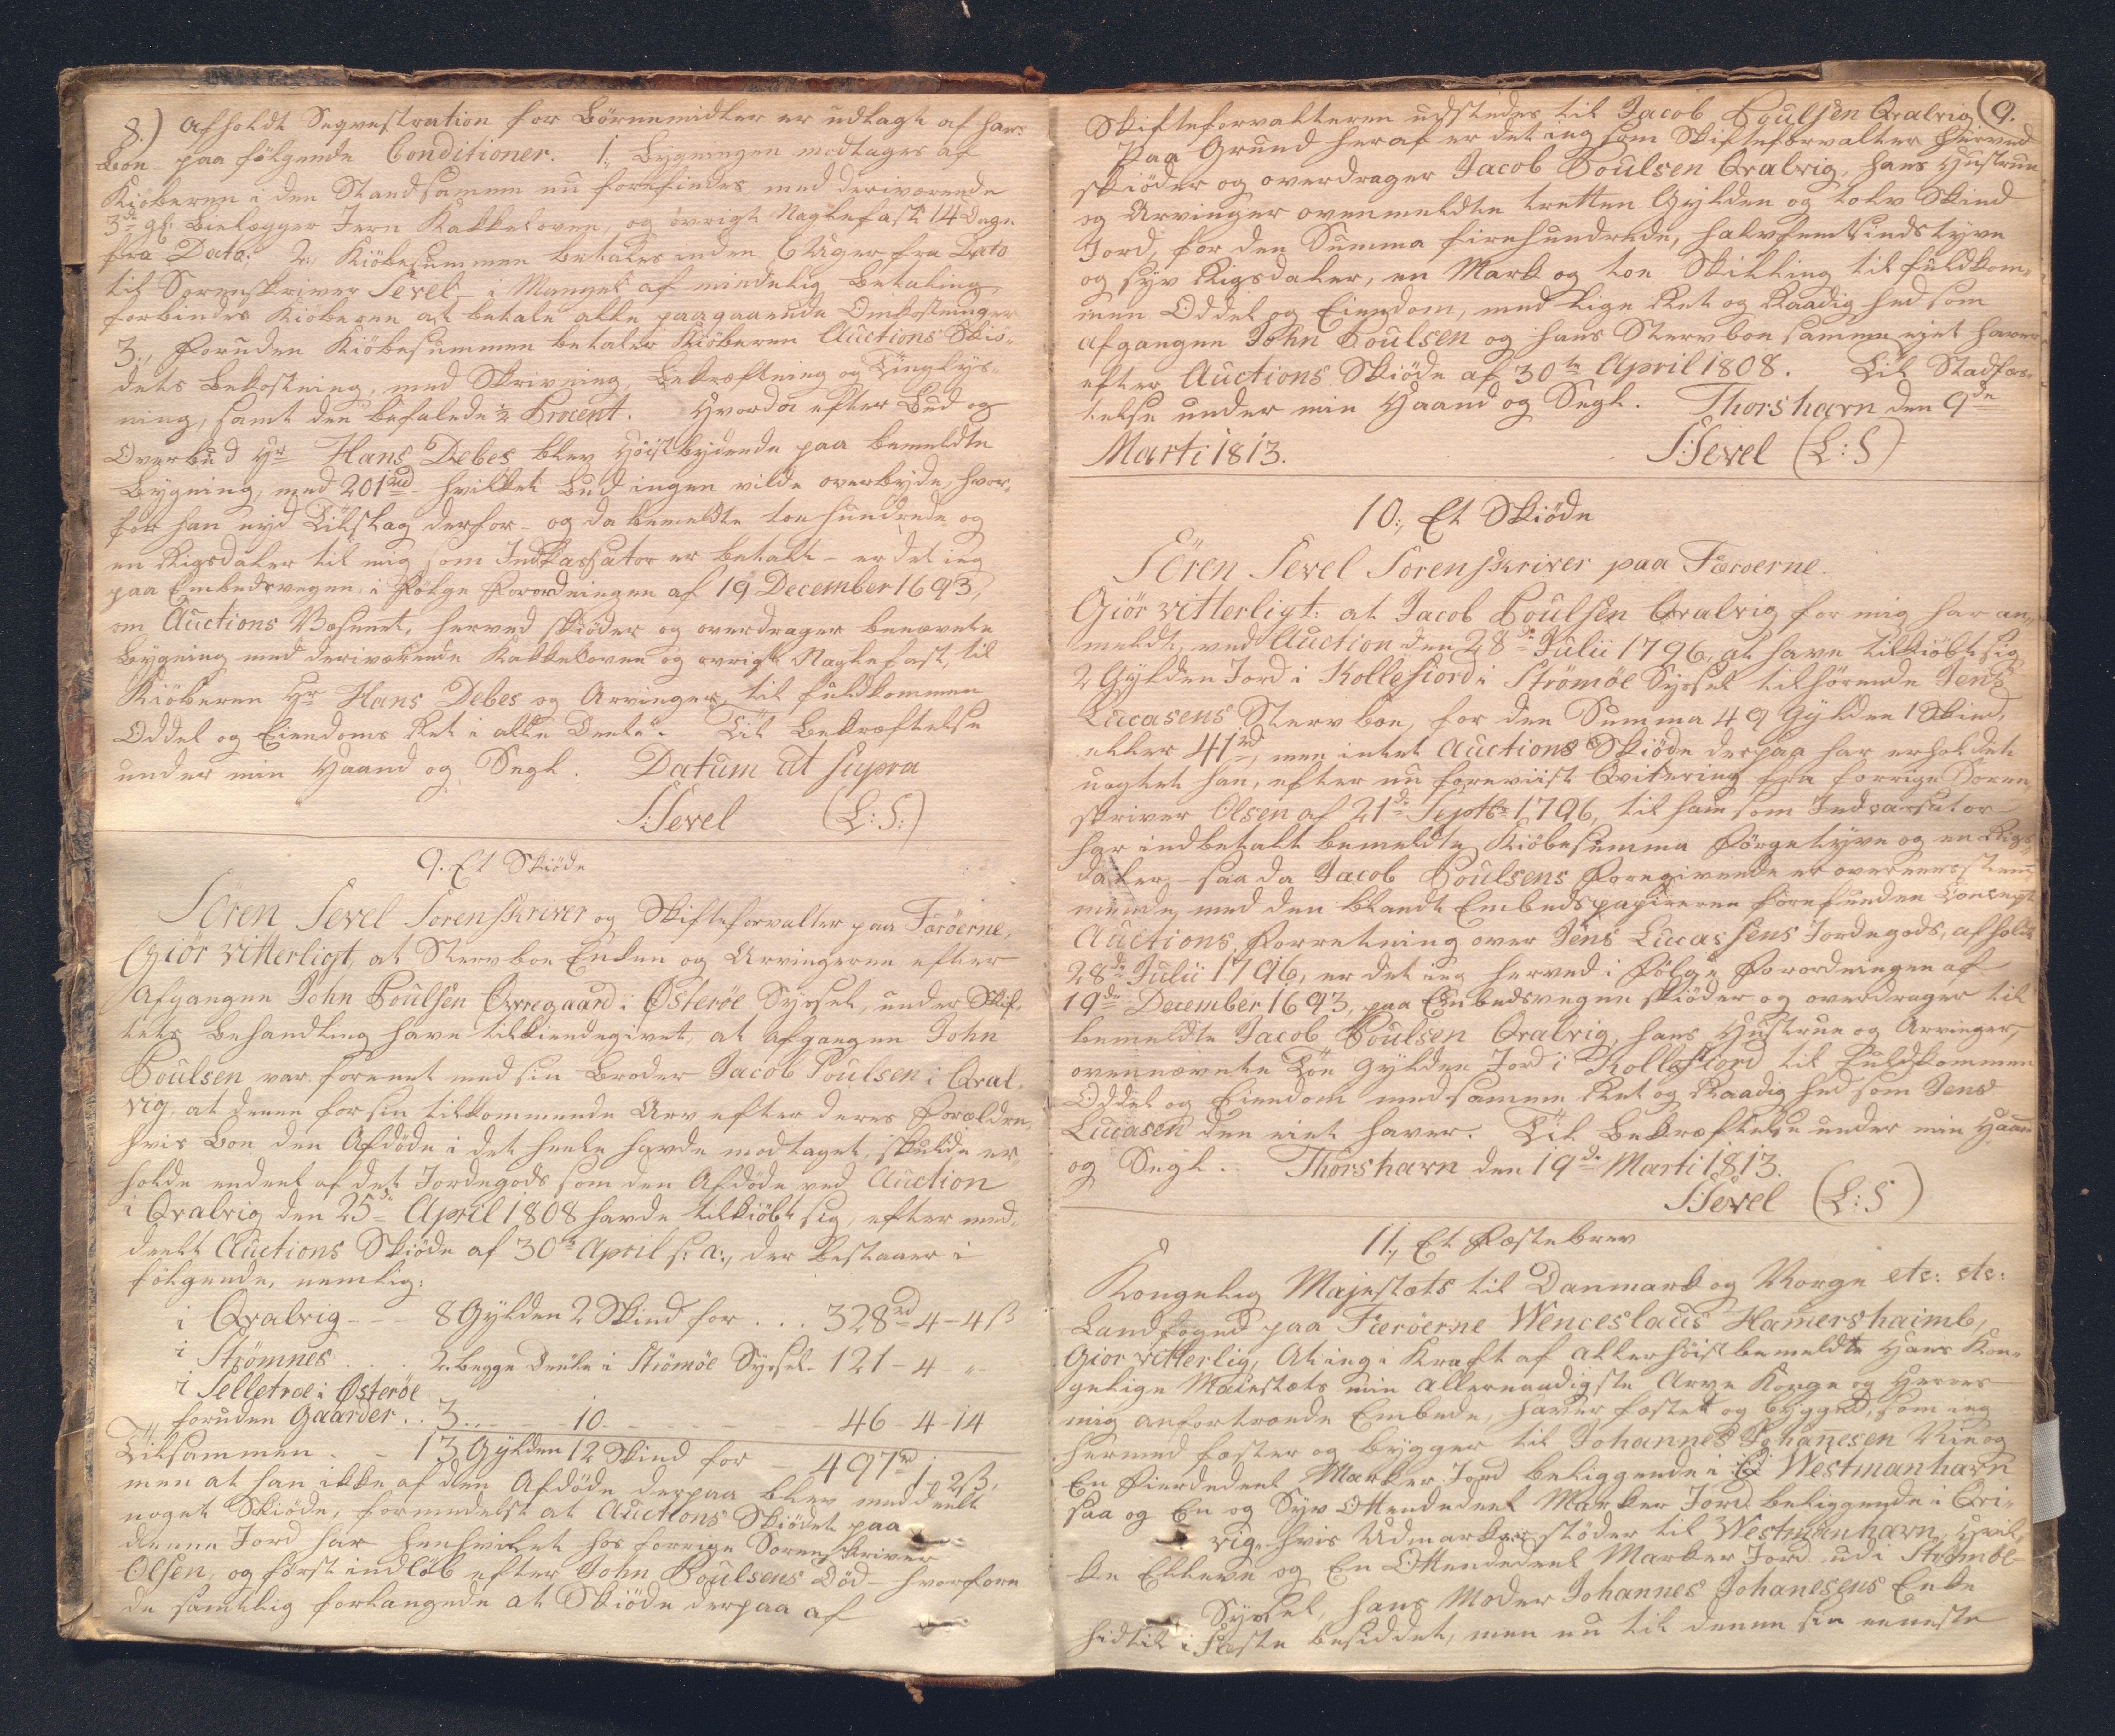 8.) Afholdt Seqvestration for Börnemidler er udlagt af hans
Boe paa följende Conditioner. 1., Bÿgningen modtages af
Kiöberen i den Stand samme nu forefindes med deriværende
3de gl: Bielægger Jern Kakkelovne, og övrigt Naglefast 14 Dage
fra Dato; 2., Kiöbesummen betales inden 6 Uger fra Dato
til Sorenskriver Sevel i Mangel af mindelig Betaling,
forbindes Kiöberen at betale alle paagaaende Omkostninger
3., Foruden Kiöbesummen betaler Kiöberen Auctions Skiö-
dets Bekostning, med Skrivning, Bekræftning og Tinglÿs-
ning, samt den befalede ½ Procent. Hvorda efter Bud og
Overbud Hr Hans Debes blev höistbydende paa bemeldte
Bÿgning, med 201rd hvilket Bud ingen vilde overbÿde, hvor-
for han nÿd Tilslag derfor - og da bemeldte toe hundrede og
en Rigsdaler til mig som Indkassator er betalt - er det ieg
paa Embedsvegne i Fölge Forordningen af 19 December 1693,
om Auctions Væsenet, herved skiöder og overdrager benævnte
Bÿgning med deriværende Kakkelovne og övrigt Naglefast, til
Kiöberen Hr Hans Debes og Arvinger, til fuldkommen
Oddel og Eiendoms Ret i alle Deele. Til Bekræftelse
under min Haand og Segl. Datum ut supra
S:Sevel (L:S:)
9. Et Skiöde
Sören Sevel Sorenskriver og Skifteforvalter paa Færöerne,
Giör vitterligt, at Stervboe Enken og Arvingerne efter
Afgangne John Poulsen Qvregaard i Österöe Sÿssel, under Skif-
tets Behandling have tilkiendegivet, at afgangen John
Poulsen var foreenet med sin Broder Jacob Poulsen i Qval-
vig, at denne for sin tilkommende Arv efter deres Forældre,
hvis Boe den Afdöde i det heele havde modtaget, skulde er-
holde endeel af det Jordegods som den Afdöde ved Auction
i Qvalvig den 25de April 1808 havde tilkiöbt sig, efter med-
deelt Auctions Skiöde af 30te April s: a:, der bestaaer i
fölgende, nemlig:
i Qvalvig - - 8 Gÿlden 2 Skind for . . . 328rd 4 - 4 ß
i Strömnes . . . 2. begge Deele i Strömöe Sÿssel - 121 - 4 "
i Selletræ i Österöe
foruden Gaarder . . 3 . . . 10 - - - 46 - 4 - 14
Tilsammen - - 13 Gÿlden 12 Skind for - 497rd 1 - 2 ß,
men at han ikke af den Afdöde derpaa blev meddeelt
noget Skiöde, formedelst at Auctions Skiödet paa
denne Jord har henhvilet hos forrige Sorenskriver
Olsen, og först indlöb efter John Poulsens Död - hvorfore
de samtlig forlangede at Skiöde derpaa af
Skifteforvalteren udstedes til Jacob Poulsen Qvalvig (9.
Paa Grund heraf er det ieg som Skifteforvalter herved
skiöder og overdrager Jacob Poulsen Qvalvig, hans Hustrue
og Arvinger ovenmeldte tretten Gÿlden og tolv Skind
Jord, for den Summa firehundrede, halvfemtsindstyve
og syv Rigsdaler, en Mark og toe Skilling til fuldkom-
men Oddel og Eiendom, med lige Ret og Raadighed som
afgangne John Poulsen og hans Stervboe samme eiet haver
efter Auctions Skiöde af 30te April 1808. Til Stadfæs-
telse under min Haand og Segl. Thorshavn den 9de
Marti 1813. S:Sevel (L:S)
10., Et Skiöde
Sören Sevel Sorenskriver paa Færoerne.
Giör vitterligt: at Jacob Poulsen Qvalvig for mig har an-
meldt, ved Auction den 28de Julii 1796, at have tilkiöbt sig
2 Gÿlden Jord i Kollefiord i Strömöe Sÿssel tilhörende Jens
Lucasens Stervboe, for den Summa 49 Gÿlden 1 Skind,
eller 41rd, men intet Auctions Skiöde derpaa har erholdet
uagtet han, efter nu foreviist Qvitering fra forrige Soren-
skriver Olsen af 21de Septbr 1796, til ham som Indcassator
har indbetalt bemeldte Kiöbesumma Förgetÿve og en Rigs-
daler - saa da Jacob Poulsens Foregivende er overeensstem-
mende, med den blandt Embedspapirerne forefunden Concept
Auctions Forretning over Jens Lucassens Jordegods, afholdt
28de Julii 1796, er det ieg herved i Fölge Forordningen af
19de December 1693, paa Embedsvegne skiöder og overdrager til
bemeldte Jacob Poulsen Qvalvig, hans Hustrue og Arvinger,
ovennævnte Toe Gÿlden Jord i Kollefiord til fuldkommen
Oddel og Eiendom med samme Ret og Raadighed som Jens
Lucasen den eiet haver. Til Bekræftelse under min Haand
og Segl. Thorshavn den 19de Marti 1813.
S:Sevel (L:S)
11., Et Fæstebrev
Kongelig Majestæts til Danmark og Norge etc: etc:
Landfoged paa Færöerne Wenceslaus Hamershaimb,
Giör vitterlig, At ieg i Kraft af allerhöist bemeldte Hans Kon-
gelige Maiestæts min allernaadigste Arve Konge og Herres
mig anfortroede Embede, haver fæstet og bÿgged, som ieg
hermed fæster og bÿgger til Johannes Johanesen
En Fierdedeel Marker Jord beliggende i Westmanhavn
saa og En og Sÿv Ottendedeel Marker Jord beliggende i Qvi-
vig, hvis Udmarker stöder til Westmanhavn, Hvil-
ke Elleve og En Ottendedeel Marker Jord udi Strömöe
Sÿssel, hans Moder Johannes Johanesens Enke
hidtil i Fæste besiddet, men nu til denne sin eeneste